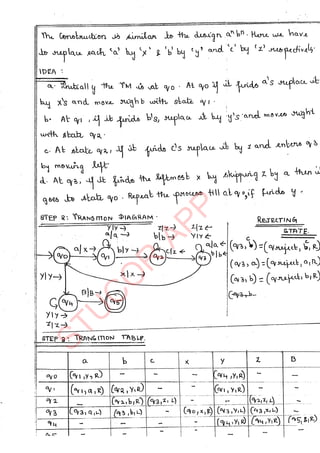 The Construction is similar to the design aⁿbⁿ. Here we have
to replace each 'a' by 'x' & 'b' by 'y' and 'c' by 'z' respectively.
IDEA :
a. Initially the TM is at q0. At q0 if it finds a's replace it
by x's and move right with state q1.
b. At q1, if it finds b's, replace it by y's and moves right
with state q2.
c. At state q2, if it finds c's replace it by z and enters q3
by moving left
d. At q3, if it finds the leftmost x by skipping z by a then it
goes to state q0. Repeat the process till at q0, if finds y.
STEP 2: TRANSITION DIAGRAM.
REJECTING STATE.
y|y→ a|a→
z|z→ b|b→
z|z← y|y← a|a← b|b←
a|x→ b|y→ c|z←
q0 q1 q2 q3
x|x→
y|y→
B|B→
q4 q5
y|y→
z|z→
(q3, c) = (qreject, c, R)
(q3, a) = (qreject, a, R)
(q3, b) = (qreject, b, R)
(q3, b
STUCOR APP
STEP 3: TRANSITION TABLE.
a b c x y z B
q0 (q1,Y,R) - - - (q4,Y,R) - -
q1 (q1,a,R) (q2,Y,R) - - (q1,Y,R) - -
q2 - (q2,b,R) (q3,z,L) - - (q2,z,L) -
q3 (q3,a,L) (q3,b,L) - (q0,x,R) (q3,Y,L) (q3,z,L) -
q4 - - - - (q4,Y,R) (q4,Y,R) (q5,B,R)
q5 - - - - - - -